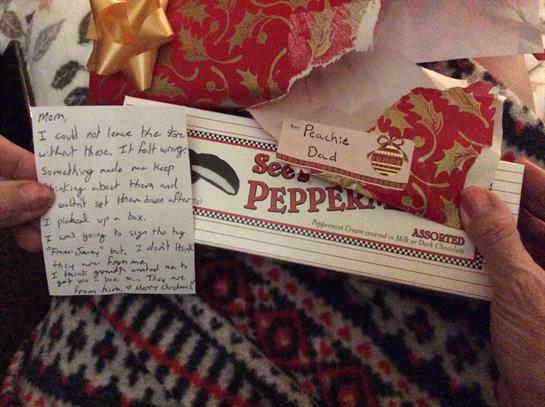 Mom,
I could not leave the store
without these. It felt wrong.
Something made me keep
thinking about them and
couldn't set them down after
I picked up a box.
I was going to sign the tag
"From Jammy" but, I don't think
they are from me,
I think grandpa wanted me to
get you a box, so... They are
from him. ♥ Merry Christmas!
Peachie
Dad
See's
PEPPERM
ASSORTED
Peppermint Cream covered in Milk or Dark Chocolate